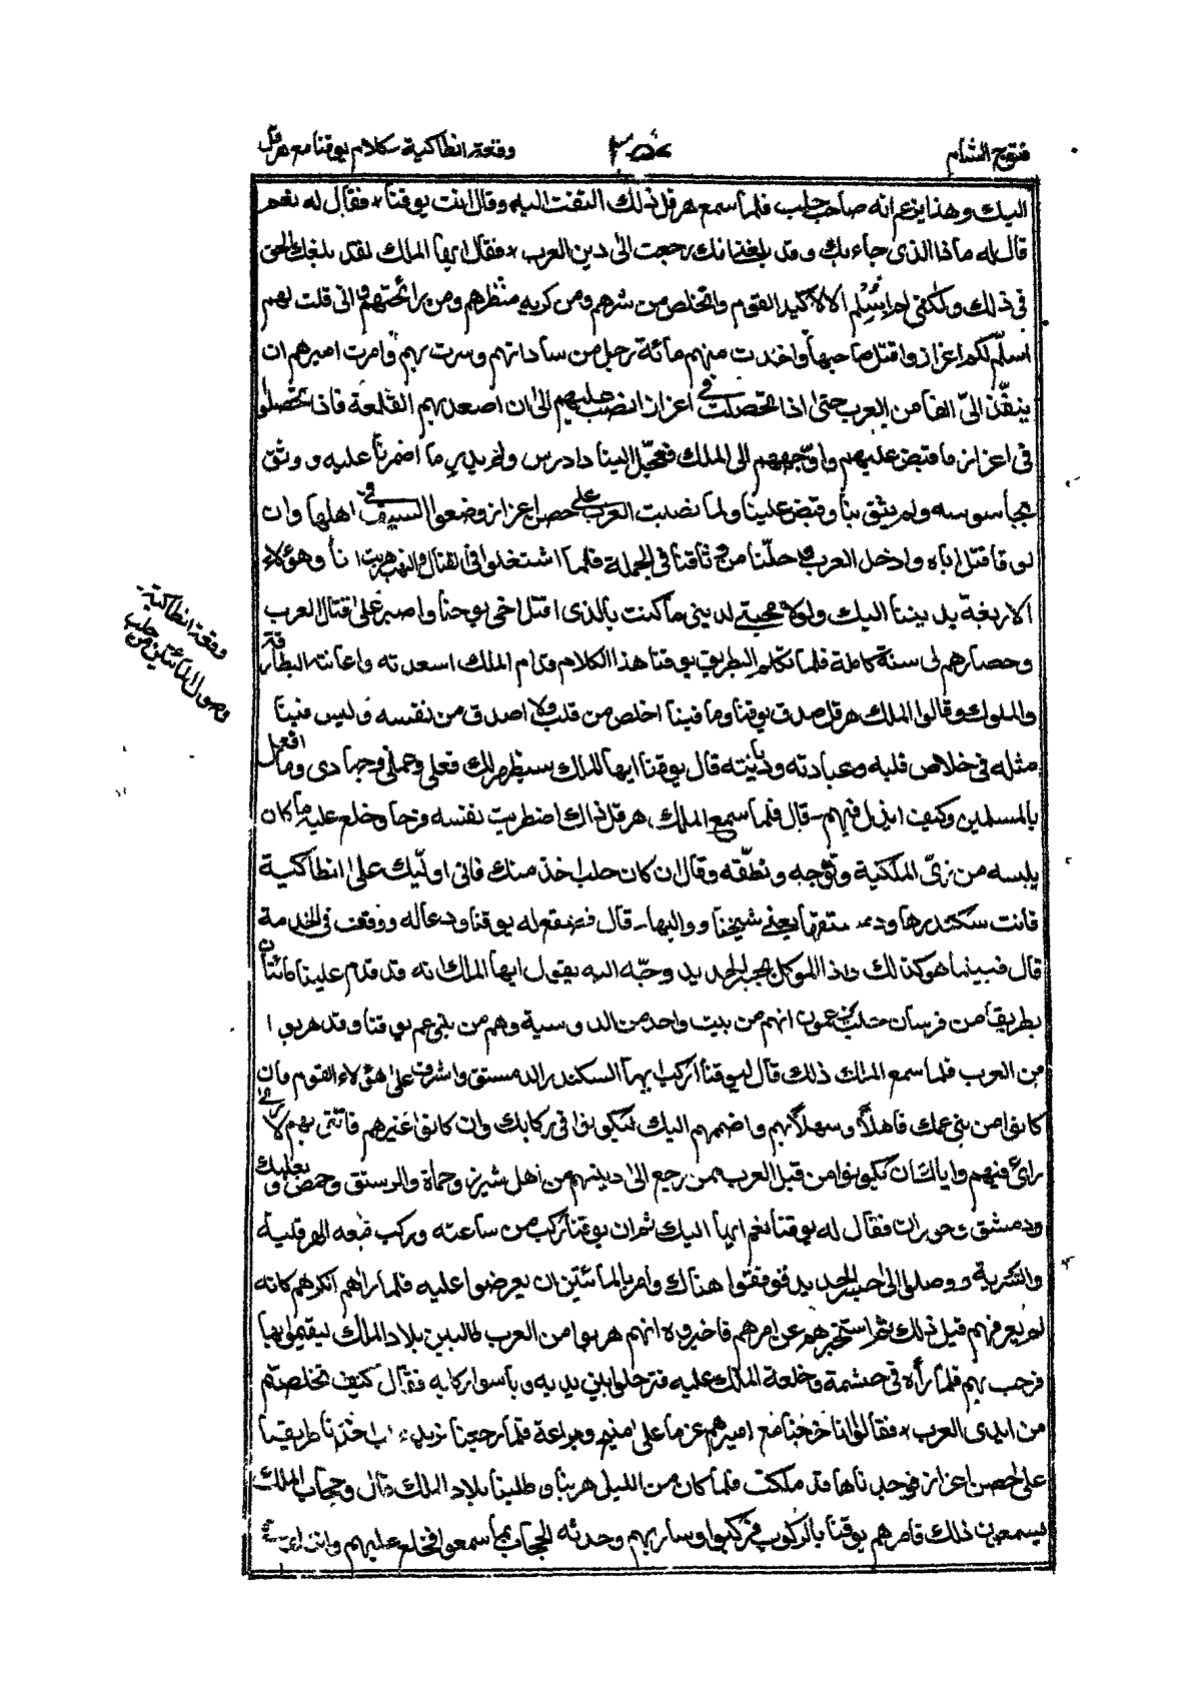 فتوح الشام
وقعة انطاكية كلام يوقنا مع هرقل
اليك وهذا يزعم انه صاحب حلب فلما سمع هرقل ذلك التفت اليه وقال انت يوقنا فقال له نعم
قال له ما ذا الذى جاء بك وقد بلغنى انك رجعت الى دين العرب فقال ايها الملك لقد بلغك الحق
فى ذلك ولكننى لم اسلم الا لاكيد القوم واتخلص من شرهم ومن كريه منظرهم ومن رائحتهم وانى قلت لهم
اسلّم لكم اعزاز واقتل صاحبها واخذت منهم مائة رجل من ساداتهم وسرت بهم وامرت اميرهم ان
ينفّذ الىّ الفا من العرب حتى اذا تحصلت فى اعزاز انصب عليهم الى ان اصعد بهم القلعة فاذا تحصلوا
فى اعزاز ما قبض عليهم واوجههم الى الملك فعجّل الينا دادرس ولم يدر ما اضمرنا عليه ووثق
بجاسوسه ولم يثق بنا وقبض علينا ولما نصبت العرب على حصن اعزاز وضعوا السيف فى اهلها وان
لوقا قتل اباه وادخل العرب وحلّنا من وثاقنا فى الجملة فلما اشتغلوا فى القتال والنهب هربت انا وهؤلاء
الاربعة يد بيننا اليك ولولا محبتى لدينى ما كنت بالذى اقتل اخى يوحنا واصبر على قتال العرب
وحصارهم لى سنة كاملة فلما تكلم البطريق يوقنا هذا الكلام قدام الملك اسعدته واعانته البطارقة
والملوك وقالوا الملك هرقل صدق يوقنا وما فينا اخلص من قلبه ولا اصدق من نفسه وليس فينا
مثله فى خلاص قلبه وعبادته وديانته قال يوقنا ايها الملك سيظهر لك فعلى وعملى وجهادى وما افعل
بالمسلمين وكيف ابذل فيهم قال فلما سمع الملك هرقل ذلك اضطربت نفسه فرحا وخلع عليه ما كان
يلبسه من زىّ الملكية وتوّجه ونطّقه وقال ان كان حلب اخذ منك فانى اوليك على انطاكية
فانت سكندرها ودمستقها يعنى شيخنا وواليها قال فصقع له يوقنا ودعا له ووقف فى الخدمة
قال فبينما هو كذلك واذا الموكل بجسر الحديد وجّه اليه يقول ايها الملك انه قد قدم علينا مائتان
بطريقا من فرسان حلب يزعمون انهم من بيت واحد من الدوسية وهم من بنى عم يوقنا وقد هربوا
من العرب فلما سمع الملك ذلك قال ليوقنا اركب ايها السكندر الدمستق واشرف على هؤلاء القوم فان
كانوا من بنى عمك فاهلاً وسهلاً بهم واضمهم اليك ليكونوا فى ركابك وان كانوا غيرهم فاتنى بهم لارى
رائى فيهم واياك ان يكونوا من قبل العرب ممن رجع الى دينهم من اهل شيزر وحماة والرستن وحمص وبعلبك
ودمشق وحوران فقال له يوقنا نعم ايها اليك ثم ان يوقنا ركب من ساعته وركب معه الهرقلية
والشكرية ووصلوا الى جسر الحديد فوقفوا هناك وامر بالمائتين ان يعرضوا عليه فلما رآهم انكرهم كانه
لم يعرفهم قبل ذلك ثم استخبرهم عن امرهم فاخبروه انهم هربوا من العرب طالبين بلاد الملك ليقيموا بها
فرحب بهم فلما رأوه فى حشمة وخلعة الملك عليه فترجلوا بين يديه وباسوا ركابه فقال كيف تخلصتم
من ايدى العرب فقالوا انا خرجنا مع اميرهم عزما على منبج وبزاعة فلما رجعنا نريد حلب اخذنا طريقنا
على حصن اعزاز فوجدناها قد ملكت فلما كان من الليل هربنا وطلبنا بلاد الملك قال وحجاب الملك
يسمعون ذلك فامرهم يوقنا بالركوب فركبوا وسار بهم وحدثه الحجاب بما سمعوا فخلع عليهم
وقعة انطاكية
وصول المائتين من حلب